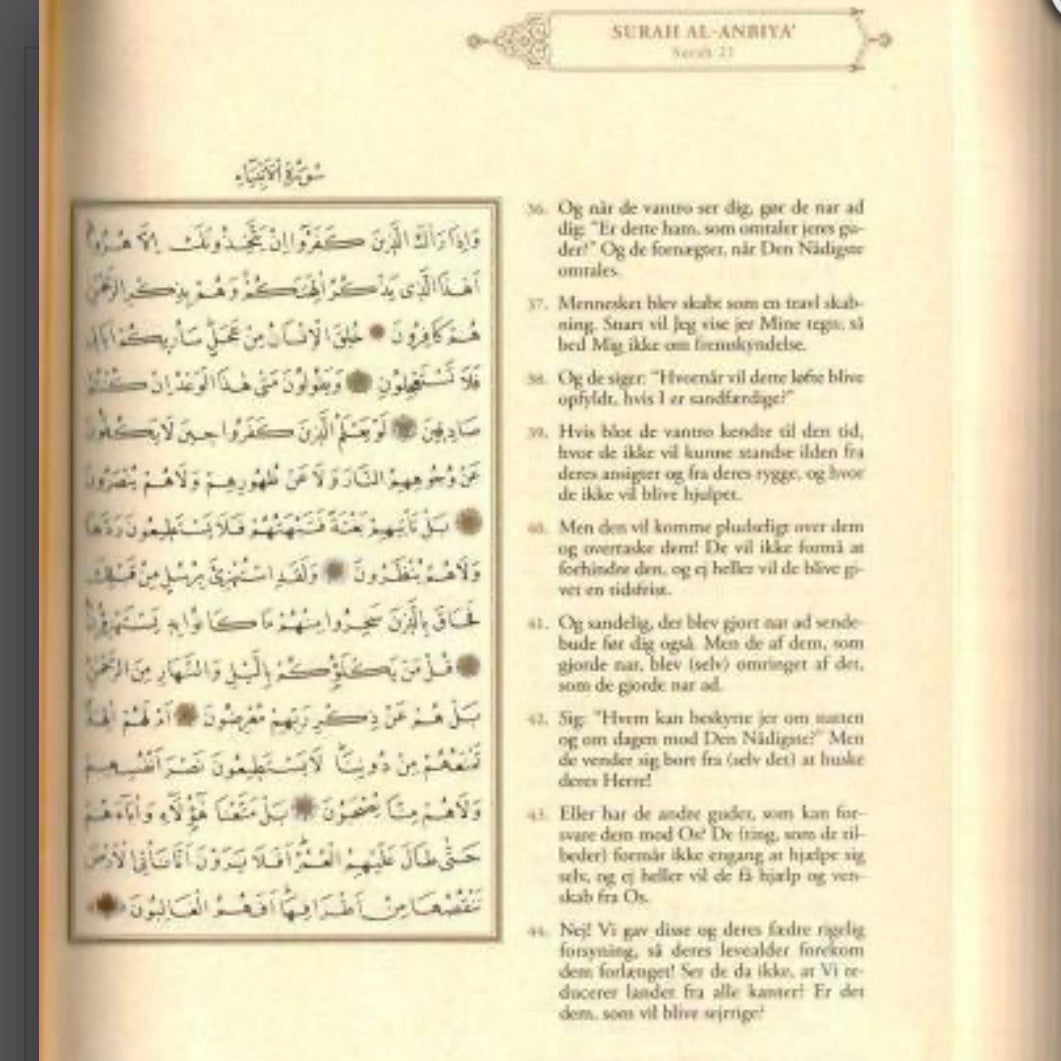 SURAH AL-ANBIYA'
Surah 21
سُورَةُ الْأَنْبِيَاءِ
وَإِذَا رَاٰكَ الَّذِينَ كَفَرُوا إِنْ يَتَّخِذُونَكَ إِلَّا هُزُوًا
أَهٰذَا الَّذِي يَذْكُرُ اٰلِهَتَكُمْ وَهُمْ بِذِكْرِ الرَّحْمٰنِ
هُمْ كَافِرُونَ خُلِقَ الْإِنْسَانُ مِنْ عَجَلٍ سَأُرِيكُمْ اٰيَاتِي
فَلَا تَسْتَعْجِلُونِ وَيَقُولُونَ مَتٰى هٰذَا الْوَعْدُ إِنْ كُنْتُمْ
صَادِقِينَ لَوْ يَعْلَمُ الَّذِينَ كَفَرُوا حِينَ لَا يَكُفُّونَ
عَنْ وُجُوهِهِمُ النَّارَ وَلَا عَنْ ظُهُورِهِمْ وَلَا هُمْ يُنْصَرُونَ
بَلْ تَأْتِيهِمْ بَغْتَةً فَتَبْهَتُهُمْ فَلَا يَسْتَطِيعُونَ رَدَّهَا
وَلَا هُمْ يُنْظَرُونَ وَلَقَدِ اسْتُهْزِئَ بِرُسُلٍ مِنْ قَبْلِكَ
فَحَاقَ بِالَّذِينَ سَخِرُوا مِنْهُمْ مَا كَانُوا بِهِ يَسْتَهْزِؤُنَ
قُلْ مَنْ يَكْلَؤُكُمْ بِالَّيْلِ وَالنَّهَارِ مِنَ الرَّحْمٰنِ
بَلْ هُمْ عَنْ ذِكْرِ رَبِّهِمْ مُعْرِضُونَ أَمْ لَهُمْ اٰلِهَةٌ
تَمْنَعُهُمْ مِنْ دُونِنَا لَا يَسْتَطِيعُونَ نَصْرَ أَنْفُسِهِمْ
وَلَا هُمْ مِنَّا يُصْحَبُونَ بَلْ مَتَّعْنَا هٰؤُلَاءِ وَاٰبَاءَهُمْ
حَتّٰى طَالَ عَلَيْهِمُ الْعُمُرُ أَفَلَا يَرَوْنَ أَنَّا نَأْتِي الْأَرْضَ
نَنْقُصُهَا مِنْ أَطْرَافِهَا أَفَهُمُ الْغَالِبُونَ
36. Og når de vantro ser dig, gør de nar ad
dig: "Er dette ham, som omtaler jeres gu-
der?" Og de fornægter, når Den Nådigste
omtales.
37. Mennesket blev skabt som en travl skab-
ning. Snart vil Jeg vise jer Mine tegn; så
bed Mig ikke om fremskyndelse.
38. Og de siger: "Hvornår vil dette løfte blive
opfyldt, hvis I er sandfærdige?"
39. Hvis blot de vantro kendte til den tid,
hvor de ikke vil kunne standse ilden fra
deres ansigter og fra deres rygge, og hvor
de ikke vil blive hjulpet.
40. Men den vil komme pludseligt over dem
og overraske dem! De vil ikke formå at
forhindre den, og ej heller vil de blive gi-
vet en tidsfrist.
41. Og sandelig, der blev gjort nar ad sende-
bude før dig også. Men de af dem, som
gjorde nar, blev (selv) omringet af det,
som de gjorde nar ad.
42. Sig: "Hvem kan beskytte jer om natten
og om dagen mod Den Nådigste?" Men
de vender sig bort fra (selv det) at huske
deres Herre!
43. Eller har de andre guder, som kan for-
svare dem mod Os? De (ting, som de til-
beder) formår ikke engang at hjælpe sig
selv, og ej heller vil de få hjælp og ven-
skab fra Os.
44. Nej! Vi gav disse og deres fædre rigelig
forsyning, så deres levealder forekom
dem forlænget! Ser de da ikke, at Vi re-
ducerer landet fra alle kanter? Er det
dem, som vil blive sejrrige?